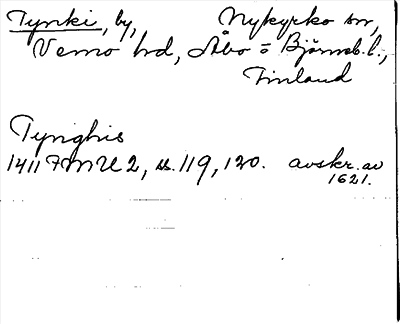 Tynki, by, Nykyrko sn,
Vemo hd, Åbo o Björneb. l.,
Finland
Tynghis
1411 FMU 2, s. 119, 120. avskr. av
1621.